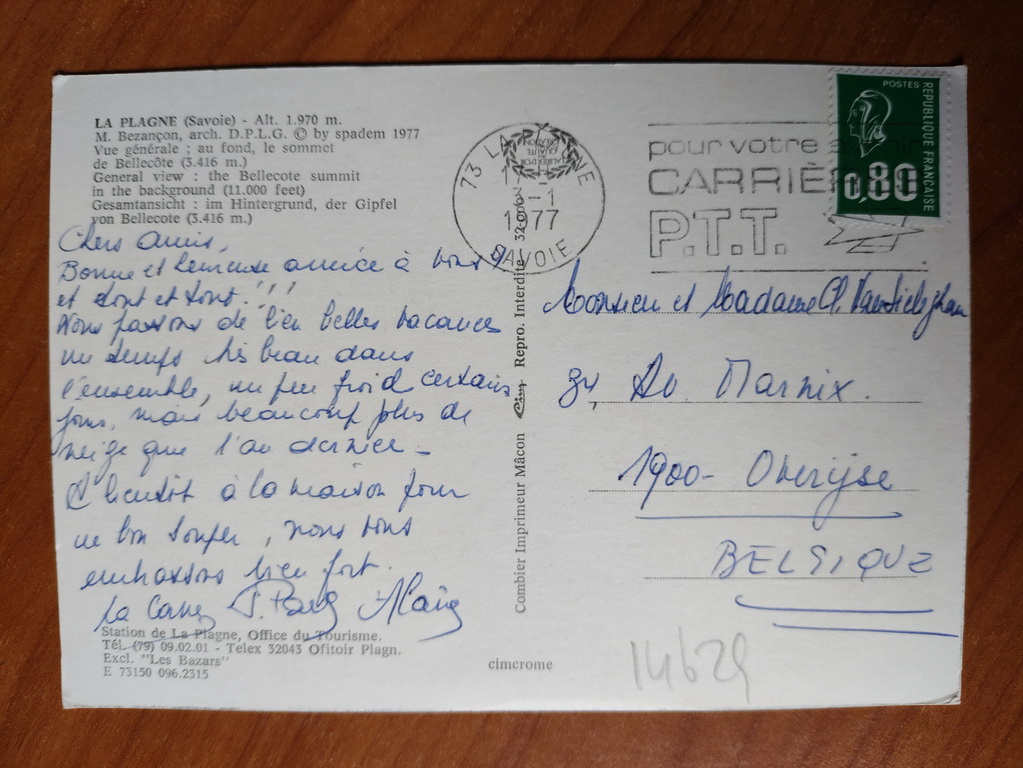 LA PLAGNE (Savoie) - Alt. 1.970 m.
M. Bezançon, arch. D.P.L.G. © by spadem 1977
Vue générale ; au fond, le sommet
de Bellecôte (3.416 m.)
General view : the Bellecote summit
in the background (11.000 feet)
Gesamtansicht : im Hintergrund, der Gipfel
von Bellecote (3.416 m.)
Chers Amis,
Bonne et heureuse année à vous
et tout et tout !!!
Nous passons de bien belles vacances
un temps très beau dans
l'ensemble, un peu froid certains
jours, mais beaucoup plus de
neige que l'an dernier -
A bientôt à la maison pour
un bon souper, nous vous
embrassons bien fort.
Station de La Plagne, Office du Tourisme.
Tél. (79) 09.02.01 - Telex 32043 Ofitoir Plagn.
Excl. "Les Bazars"
E 73150 096.2315
Combier Imprimeur Mâcon Cim Repro. Interdite
cimcrome
73 LA PLAGNE
-1
1977
SAVOIE
pour votre
CARRIÈ
P.T.T.
POSTES
REPUBLIQUE FRANÇAISE
0,80
Monsieur et Madame
34, Av Marnix.
1900 - Overijse
BELGIQUE
14629